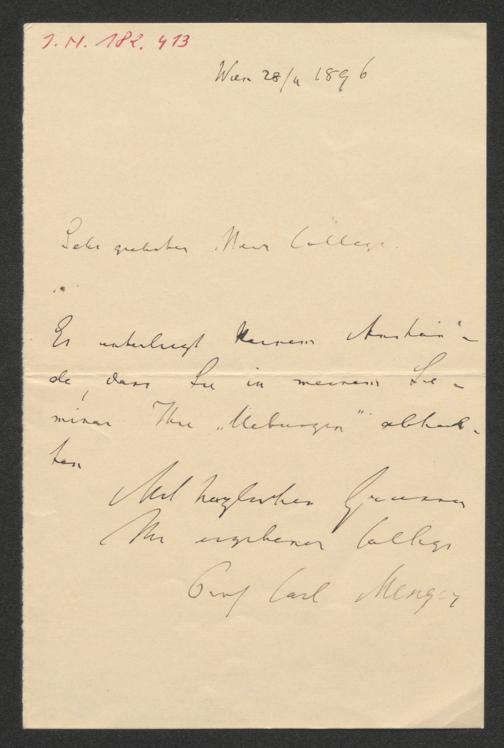 I.N. 182.413
Wien 28/4 1896
Sehr geehrter Herr College
Es unterliegt keinem Anstän-
de, dass Sie in meinem Se-
minar Ihre „Uebungen" abhal-
ten
Mit herzlichen Grüssen
Ihr ergebener College
Prof Carl Menger